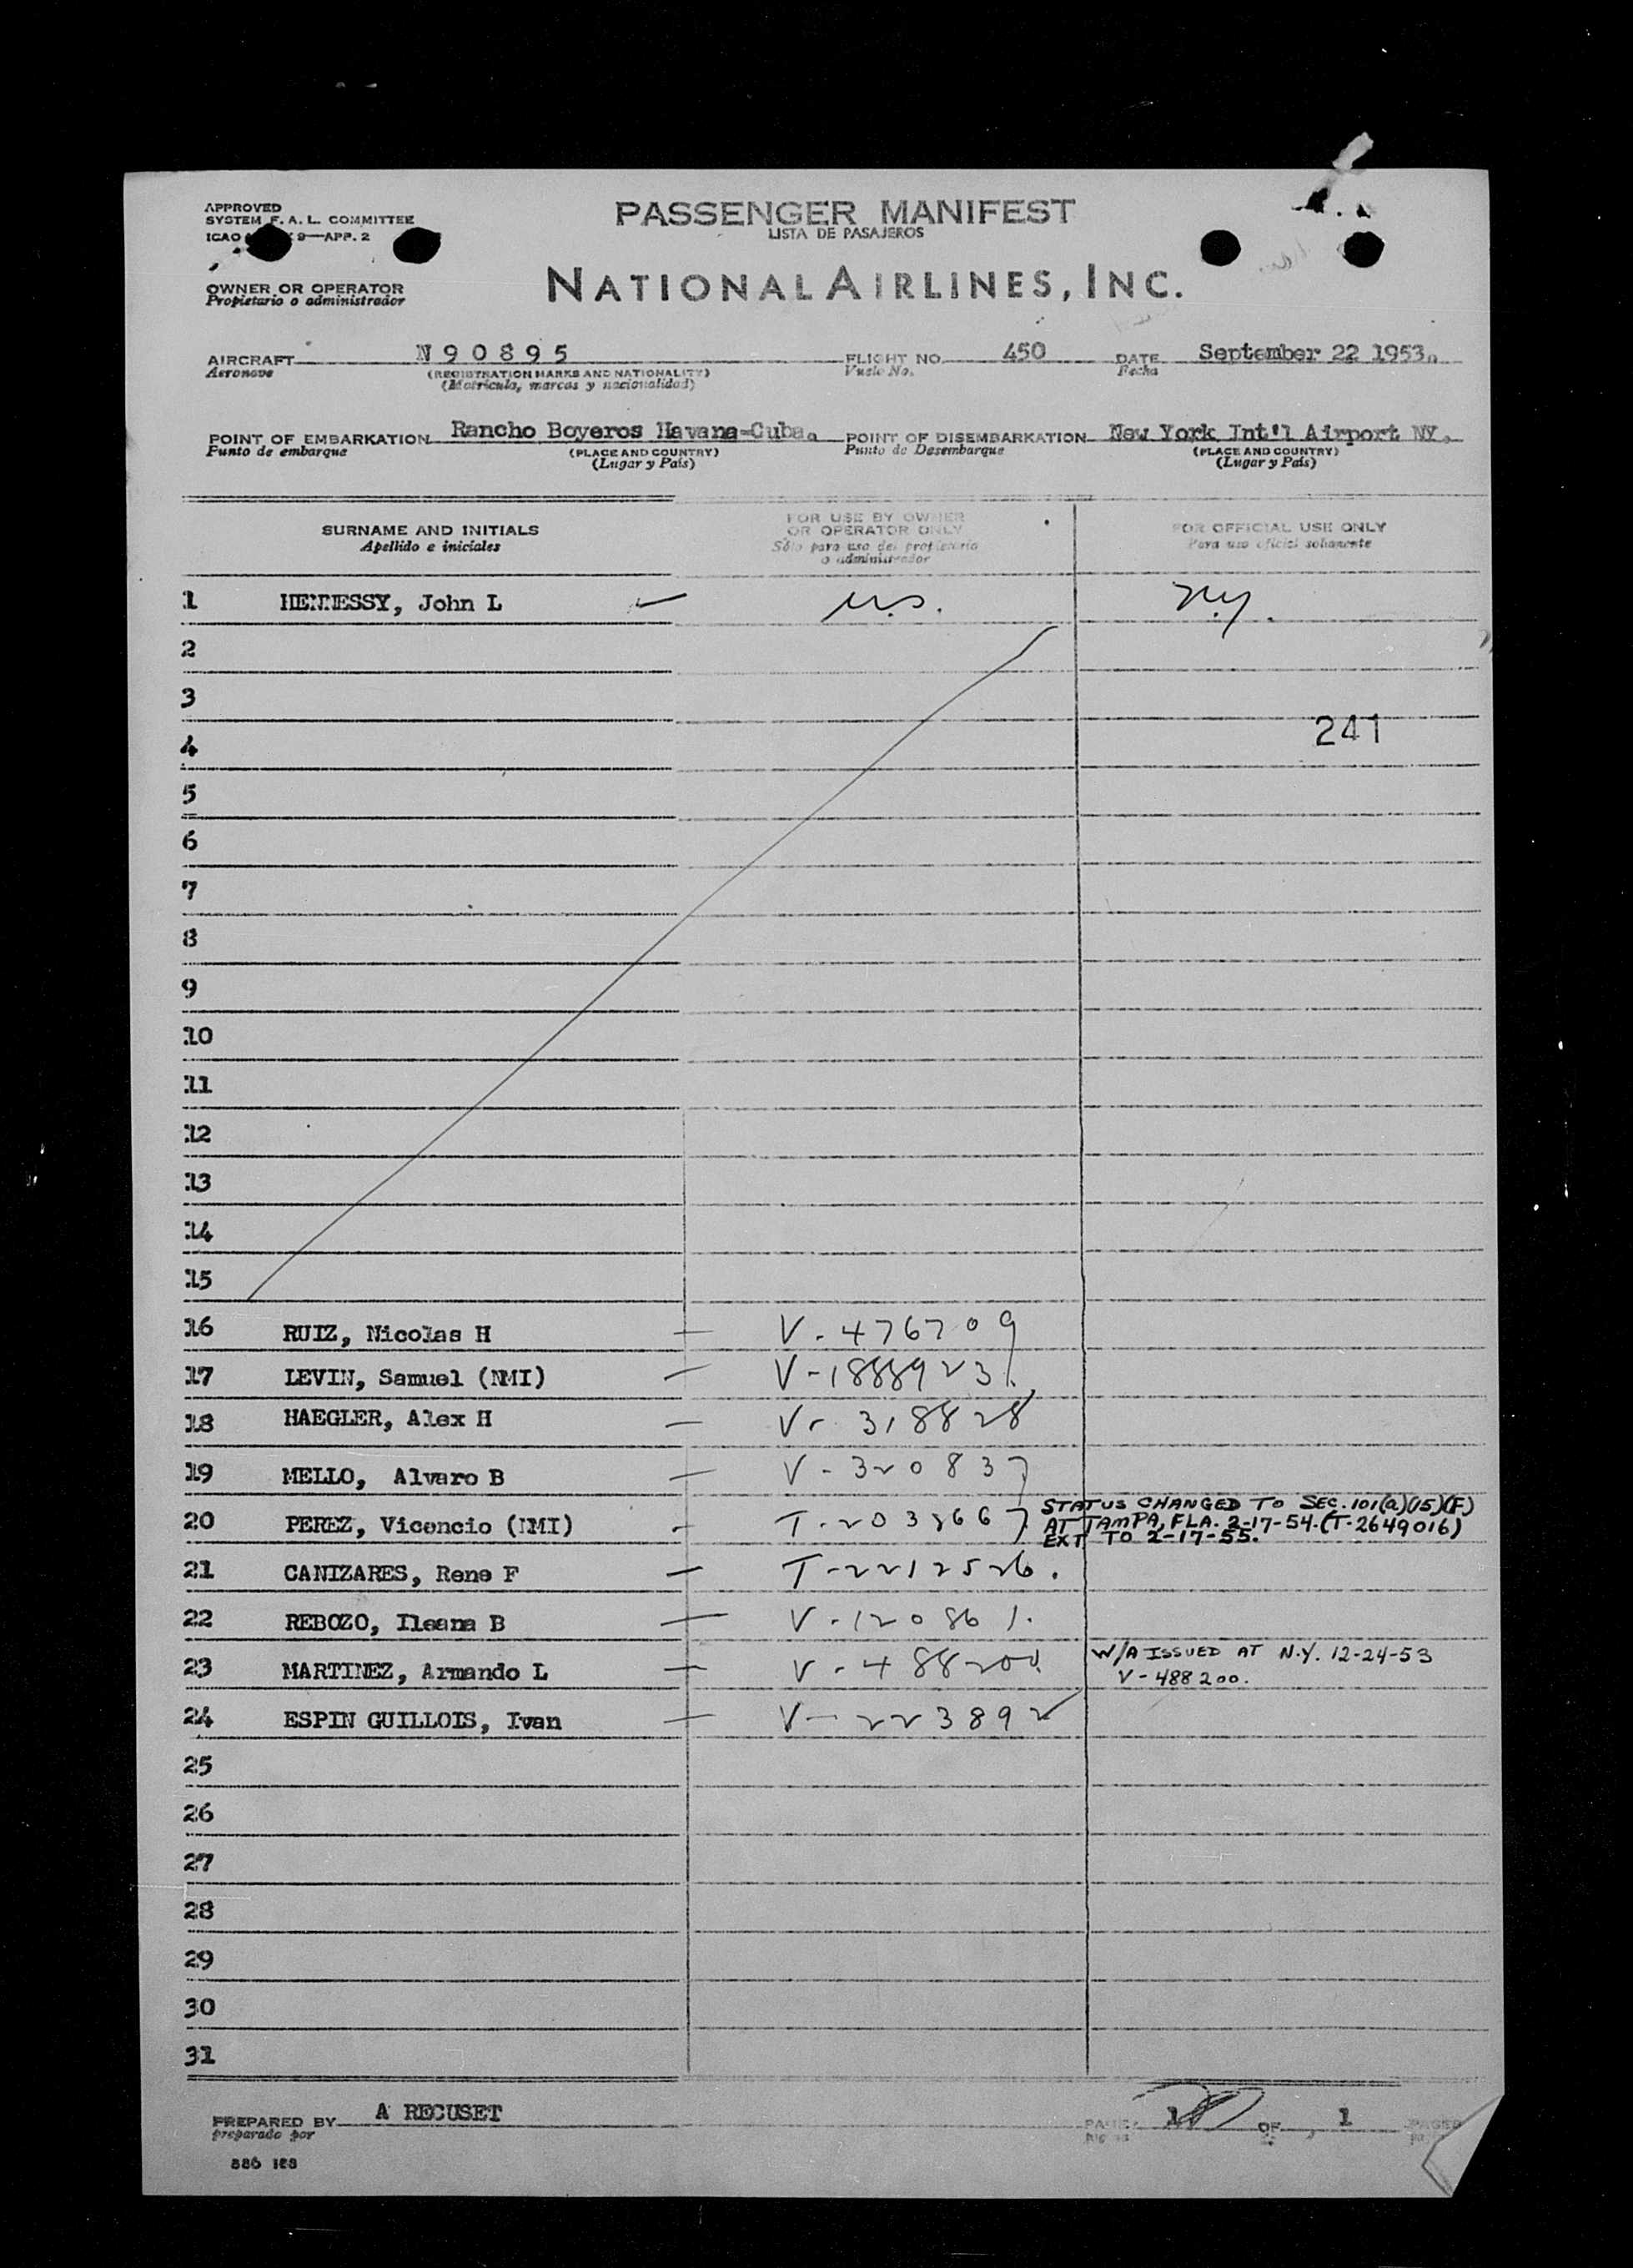 APPROVED
SYSTEM F. A. L. COMMITTEE
ICAO 9—APP. 2
PASSENGER MANIFEST
LISTA DE PASAJEROS
OWNER OR OPERATOR
Propietario o administrador
NATIONAL AIRLINES, INC.
AIRCRAFT N90895 FLIGHT NO. 450 DATE September 22 1953.
Aeronave (REGISTRATION MARKS AND NATIONALITY) Vuelo No. Fecha
(Matrícula, marcas y nacionalidad)
POINT OF EMBARKATION Rancho Boyeros Havana-Cuba. POINT OF DISEMBARKATION New York Int'l Airport NY.
Punto de embarque (PLACE AND COUNTRY) Punto de Desembarque (PLACE AND COUNTRY)
(Lugar y País) (Lugar y País)
SURNAME AND INITIALS
Apellido e iniciales
FOR USE BY OWNER
OR OPERATOR ONLY
Sólo para uso del propietario
o administrador
FOR OFFICIAL USE ONLY
Para uso oficial solamente
1 HENNESSY, John L U.S. N.Y.
2
3
241
4
5
6
7
8
9
10
11
12
13
14
15
16 RUIZ, Nicolas H V-476709
17 LEVIN, Samuel (NMI) V-1888923
18 HAEGLER, Alex H V-318828
19 MELLO, Alvaro B V-320837
20 PEREZ, Vicencio (NMI) T-2038667 STATUS CHANGED TO SEC. 101(a)(15)(F)
AT TAMPA, FLA. 2-17-54. (T-2649016)
EXT TO 2-17-55.
21 CANIZARES, Rene F T-2212526.
22 REBOZO, Ileana B V-120861.
23 MARTINEZ, Armando L V-488200 W/A ISSUED AT N.Y. 12-24-53
V-488200.
24 ESPIN GUILLOIS, Ivan V-223892
25
26
27
28
29
30
31
PREPARED BY A RECUSET 1 OF 1
preparado por
886 168